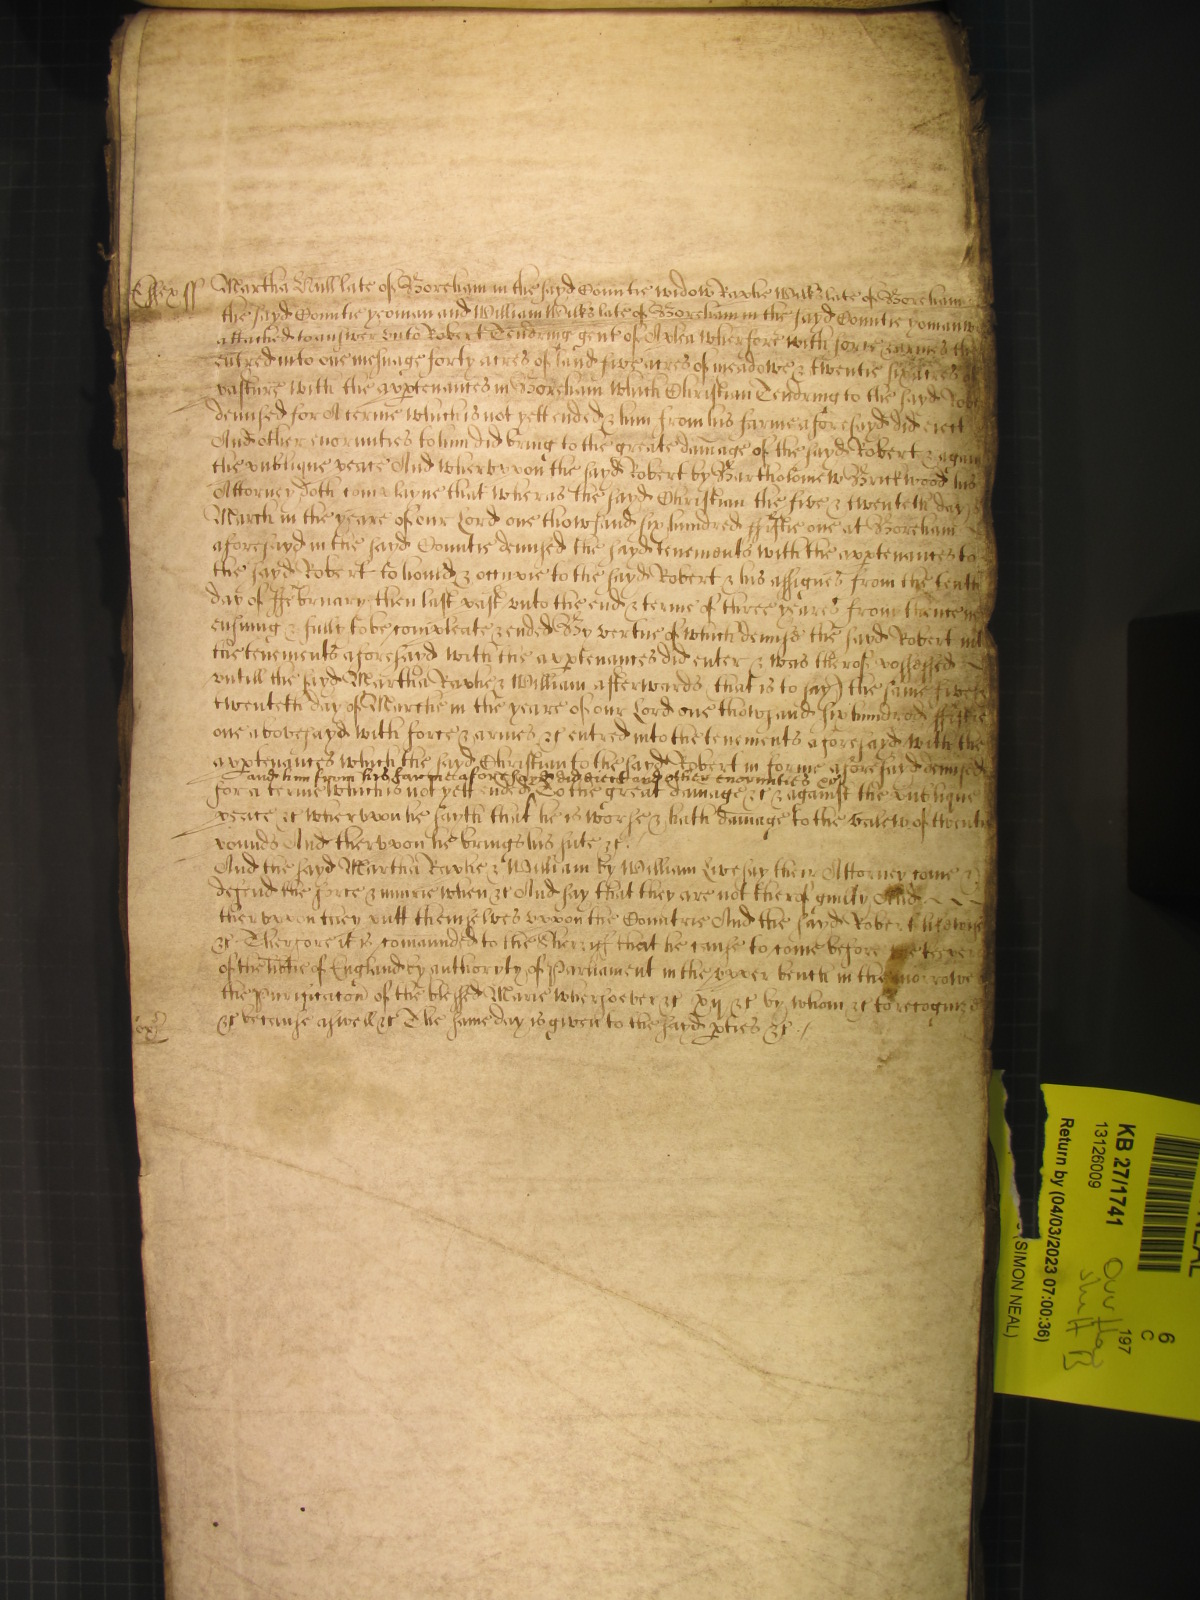 Essex ss Martha Null late of Boreham in the sayd Countie widow Raphe Wilks late of Boreham in
the sayd Countie yeoman and William Wilks late of Boreham in the sayd Countie yoman were
attached to answer unto Robert Tendring gent of A plea wherfore with force & armes the
entred into one mesuage forty acres of land five acres of meadowe & twentie six acres of
pasture with the apptenances in Boreham which Christian Tendring to the sayd Robt
demised for A terme which is not yett ended & him from his farme aforesayd did eiect
And other enormities to him did bring to the greate damage of the sayd Robert & again
the publique peace And wherupon the sayd Robert by Bartholomew Brickwood his
Attorney doth complayne that wheras the sayd Christian the five & twenteth day of
March in the yeare of our Lord one thowsand six hundred fiftie one at Boreham
aforesayd in the sayd Countie demised the sayd tenements with the apptenances to
the sayd Robert to hould & occupie to the sayd Robert & his assignes from the tenth
day of ffebruary then last past unto the end & terme of three yeares from thence ne
ensuing & fully to be compleate & ended By vertue of which demise the sayd Robert int
the tenements aforesayd with the apptenances did enter & was therof possessed
untill the sayd Martha Raphe & William afterwards (that is to say) the same five &
twenteth day of Marche in the yeare of our Lord one thowsand six hundred fiftie
one abovesayd with force & armes &c entred into the tenements aforesaid with the
apptenances which the sayd Christian to the sayd Robert in forme aforesayd demised
and him from his farme aforesayd did eiect and other enormities &c
for a terme which is not yett ended To the great damage &c & against the publique
peace &c wherupon he sayth that he is worse & hath damage to the valew of twenty
pounds And therupon he brings his sute &c.
And the sayd Martha Raphe & William by William Livesay their Attorney come &
defend the force & iniurie when &c And say that they are not therof guilty And
therupon they putt themselves uppon the Countrie And the sayd Robert likewise
&c Therefore it is comaunded to the Sherriff that he cause to come before the keepers
of the libtie of England by authoryty of Parliament in the upper bench in the morrowe
the Purificacon of the blessed Marie whersoever &c xij &c by whom &c to recognize
&c because aswell &c The same day is given to the sayd pties &c
KB 27/1741
13126009
Return by (04/03/2023 07:00:36)
(SIMON NEAL)
6
C
197